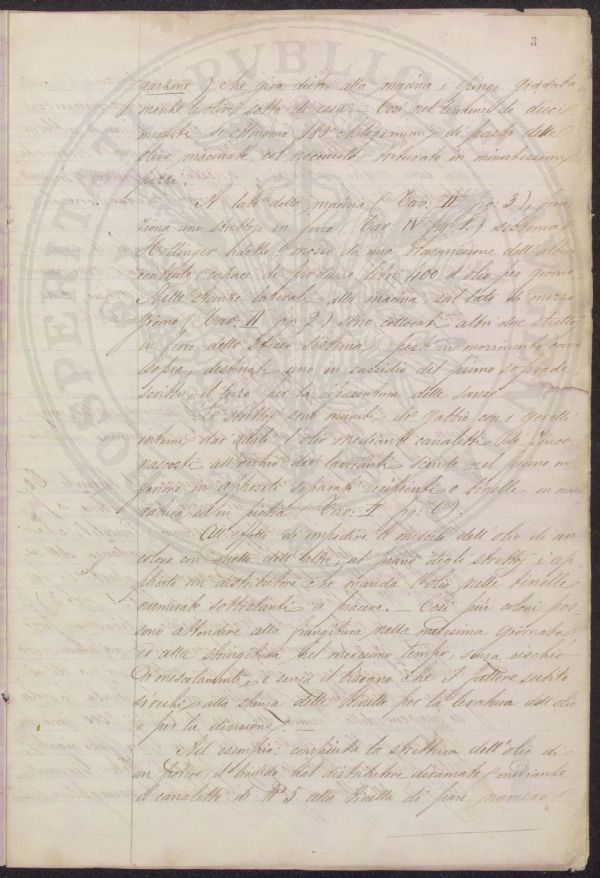 3
garzone) che gira dietro alla macina e spinge gradata
mente le olive sotto di essa. — Così nel termine di dieci
minuti si ottengono chilogrammi di pasta delle
olive macinate col nocciuolo triturato in minutissimi
pezzi.
A lato della macina (Tav: II fig: 3), fun
ziona uno strettojo in ferro (Tav: IV fig: 1) sistema
mosso da una trasmissione dell'albero
centrale, capace di produrre litri 400 d'olio per giorno.
Nelle stanze laterali alla macina sul lato di mezzo
giorno (Tav: II fig: 2) sono collocati altri due strettoj
in ferro dello stesso sistema e posti in movimento come
sopra, destinati uno in sussidio del primo soprade
scritto, il terzo per la delle sanse.
Li strettoj sono muniti di gabbie con
interni dai quali l'olio mediante canaletti di zinco
nascosti all'occhio dei lavoranti scende nel piano in
feriore in appositi separati recipienti o tinelle in mu
ratura ed in pietra Tav: I fig: 6).
All'effetto di impedire il miscuglio dell'olio di un
colono con quello dell'altro, al piano degli strettoj è ap
plicato un distributore che manda l'olio nelle tinelle
numerate sottostanti a piacere. — Così più coloni pos
sono attendere alla frangitura nella medesima giornata,
ed alla stringitura nel medesimo tempo, senza rischio
di mescolamenti, e senza il bisogno che il fattore subito
si rechi alla stanza delle tinelle per la levatura dell'olio
e per la divisione. —
Ad esempio: compiuta la strettura dell'olio di
un podere, il liquido dal distributore diramato mediante
il canaletto di N° 5 alla tinella di pari numero,